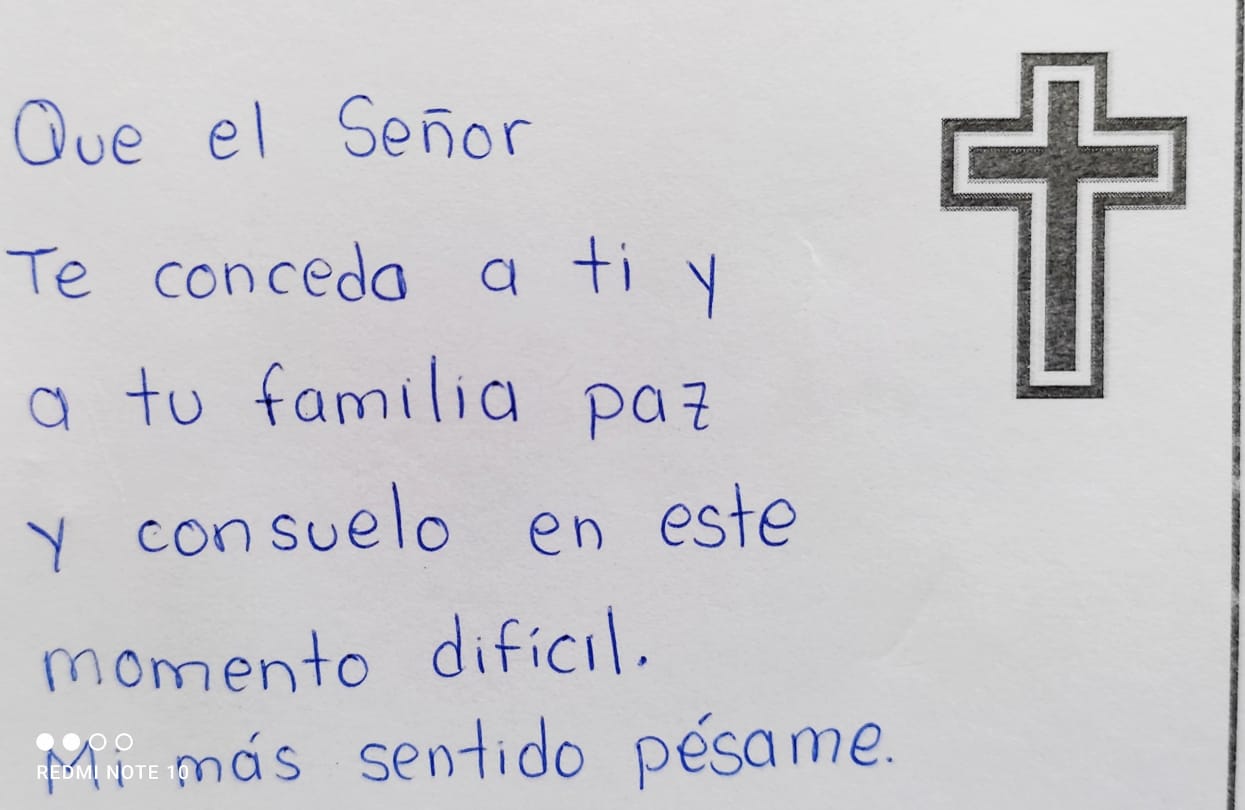 Que el Señor
Te conceda a ti y
a tu familia paz
y consuelo en este
momento difícil.
Mi más sentido pésame.
REDMI NOTE 10